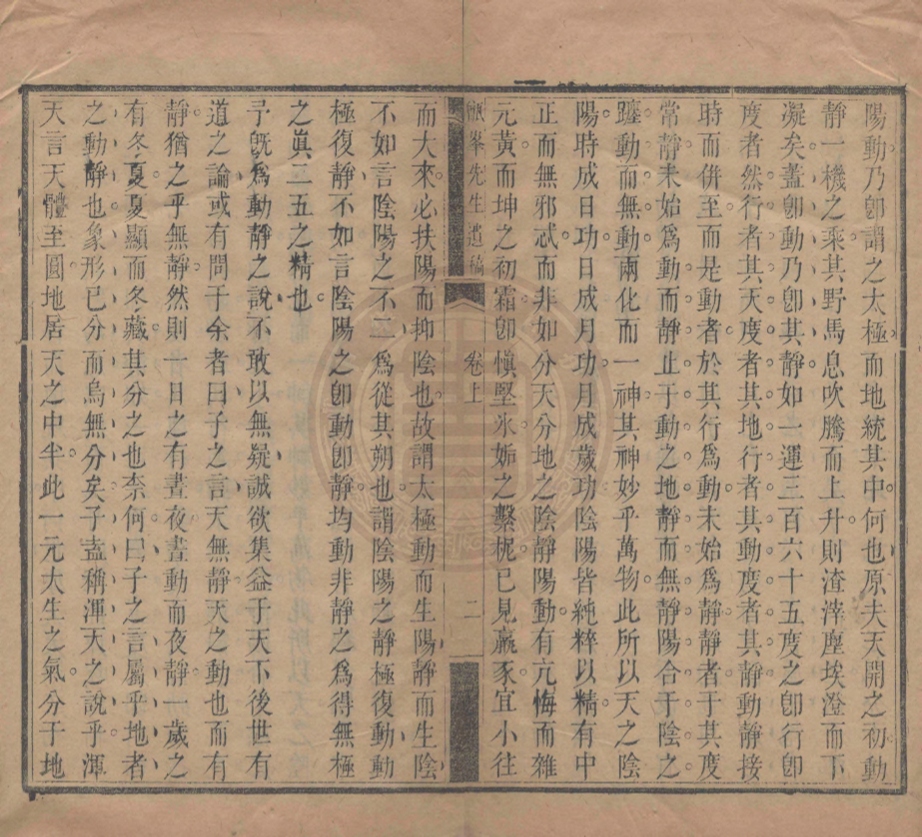 陽動乃卽謂之太極而地統其中何也原夫天開之初動
靜一機之乘其野馬息吹騰而上升則渣滓塵埃澄而下
凝矣蓋卽動乃卽其靜如一運三百六十五度之卽行卽
度者然行者其天度者其地行者其動度者其靜動靜接
時而併至而是動者於其行爲動未始爲靜靜者于其度
常靜未始爲動而靜止于動之地靜而無靜陽合于陰之
躔動而無動兩化而一神其神妙乎萬物此所以天之陰
陽時成日功日成月功月成歲功陰陽皆純粹以精有中
正而無邪忒而非如分天分地之陰靜陽動有亢悔而雜
元黃而坤之初霜卽愼堅氷姤之繫柅已見羸豕宜小往
峯先生遺稿 卷上 二
而大來必扶陽而抑陰也故謂太極動而生陽靜而生陰
不如言陰陽之不二爲從其朔也謂陰陽之靜極復動動
極復靜不如言陰陽之卽動卽靜均動非靜之爲得無極
之眞二五之精也
予旣爲動靜之說不敢以無疑誠欲集益于天下後世有
道之論或有問于余者曰子之言天無靜天之動也而有
靜猶之乎無靜然則一日之有晝夜晝動而夜靜一歲之
有冬夏夏顯而冬藏其分之也柰何曰子之言屬乎地者
之動靜也象形已分而烏無分矣子盍稱渾天之說乎渾
天言天體至圓地居天之中半此一元大生之氣分于地